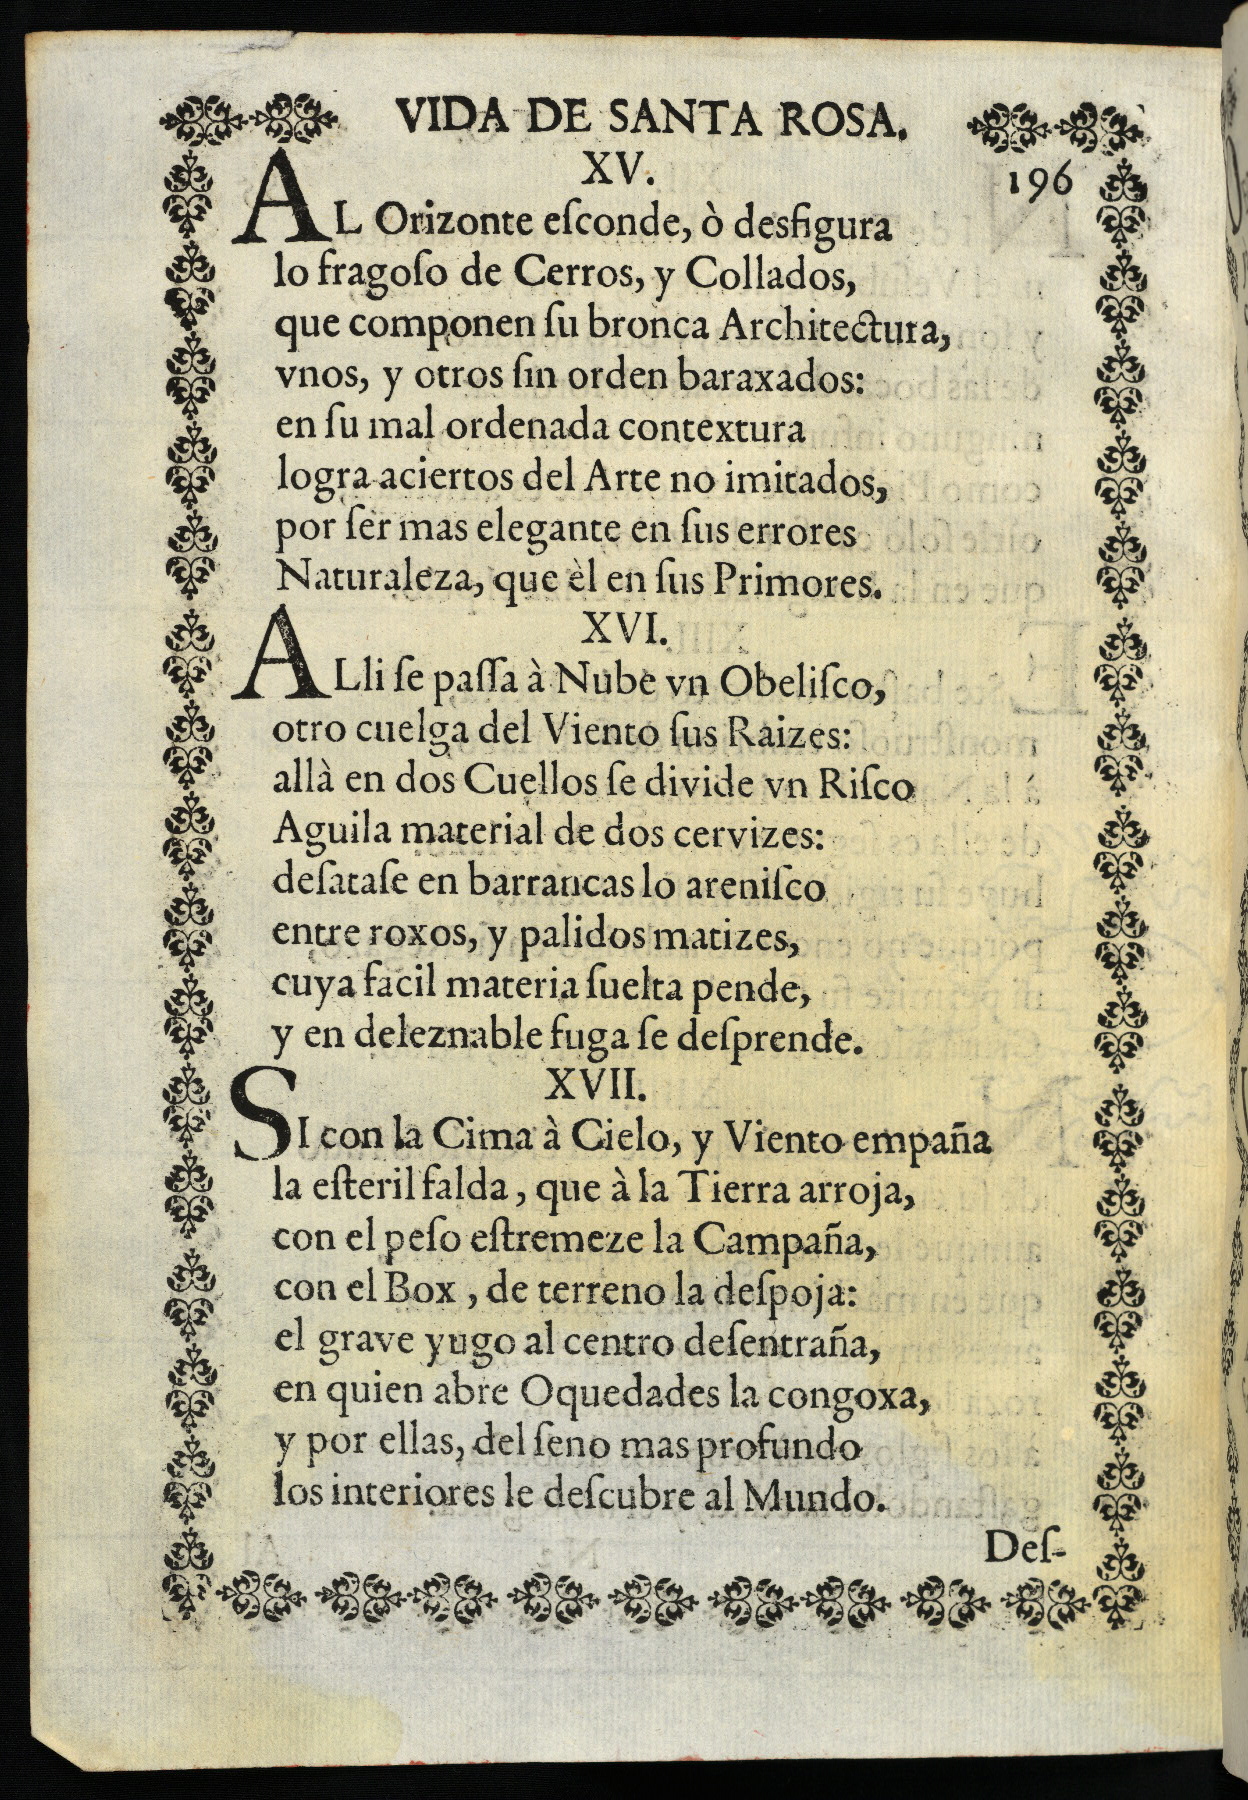 VIDA DE SANTA ROSA.
XV.
196
AL Orizonte eſconde, ò desfigura
lo fragoſo de Cerros, y Collados,
que componen ſu bronca Architectura,
vnos, y otros ſin orden baraxados:
en ſu mal ordenada contextura
logra aciertos del Arte no imitados,
por ſer mas elegante en ſus errores
Naturaleza, que èl en ſus Primores.
XVI.
ALli ſe paſſa à Nube vn Obeliſco,
otro cuelga del Viento ſus Raizes:
allà en dos Cuellos ſe divide vn Riſco
Aguila material de dos cervizes:
deſataſe en barrancas lo areniſco
entre roxos, y palidos matizes,
cuya facil materia ſuelta pende,
y en deleznable fuga ſe deſprende.
XVII.
SI con la Cima à Cielo, y Viento empaña
la eſteril falda, que à la Tierra arroja,
con el peſo eſtremeze la Campaña,
con el Box, de terreno la deſpoja:
el grave yugo al centro deſentraña,
en quien abre Oquedades la congoxa,
y por ellas, del ſeno mas profundo
los interiores le deſcubre al Mundo.
Deſ-